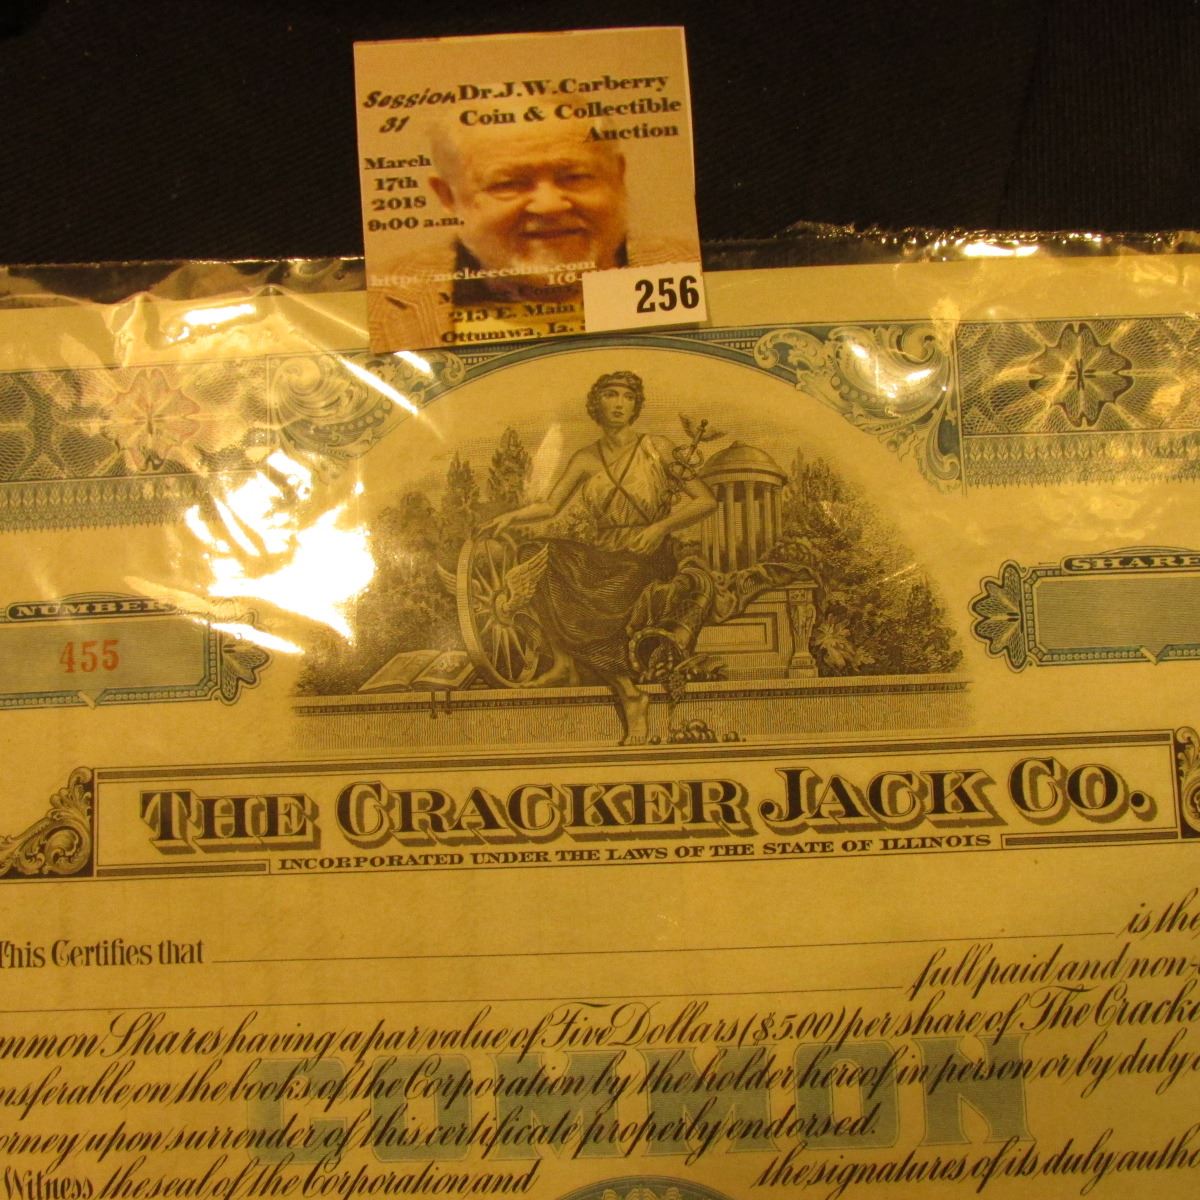 Session Dr.J.W.Carberry
31 Coin & Collectible
Auction
March
17th
2018
9:00 a.m.
213 E. Main
Ottumwa, Ia.
256
NUMBER
455
SHARE
THE CRACKER JACK CO.
INCORPORATED UNDER THE LAWS OF THE STATE OF ILLINOIS
This Certifies that is the
full paid and non-
mmon Shares having a par value of Five Dollars ($5.00) per share of The Cracke
nsferable on the books of the Corporation by the holder hereof in person or by duly
orney upon surrender of this certificate properly endorsed.
COMMON
Witness the seal of the Corporation and the signatures of its duly autho